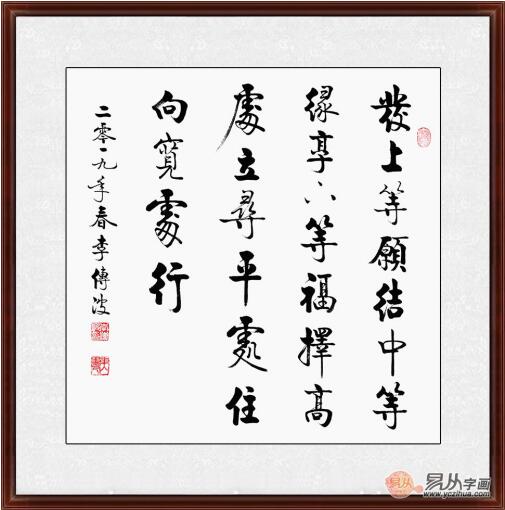 發上等願結中等
緣享下等福擇高
處立尋平處住
向寬處行
二零一九年春李傳波
易从字画
www.yczihua.com